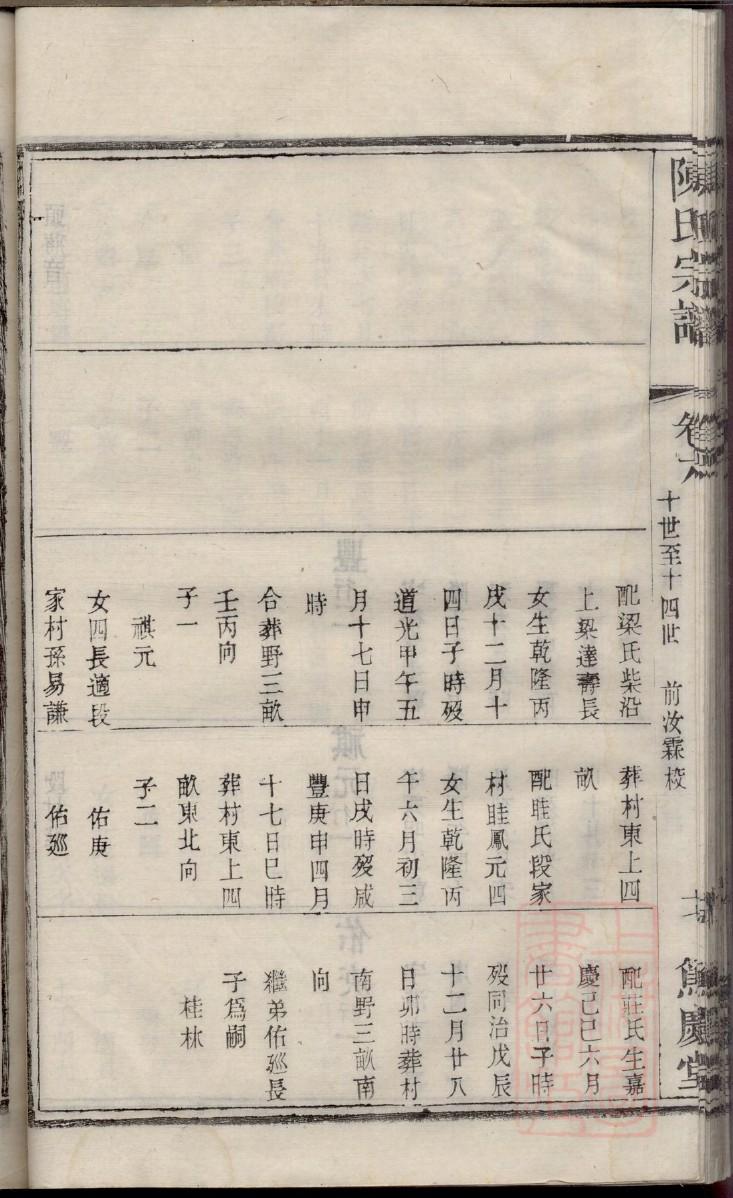 陳氏宗譜
卷六
十世至十四世　前汝霖校
配梁氏柴沿
上梁達壽長
女生乾隆丙
戌十二月十
四日子時歿
道光甲午五
月十七日申
時
合葬野三畝
壬丙向
子一
祺元
女四長適段
家村孫易謙
葬村東上四
畝
配眭氏段家
村眭鳳元四
女生乾隆丙
午六月初三
日戌時歿咸
豐庚申四月
十七日巳時
葬村東上四
畝東北向
子二
佑庚
佑廵
配莊氏生嘉
慶己巳六月
廿六日子時
歿同治戊辰
十二月廿八
日卯時葬村
南野三畝南
向
繼弟佑廵長
子爲嗣
桂林
慶堂